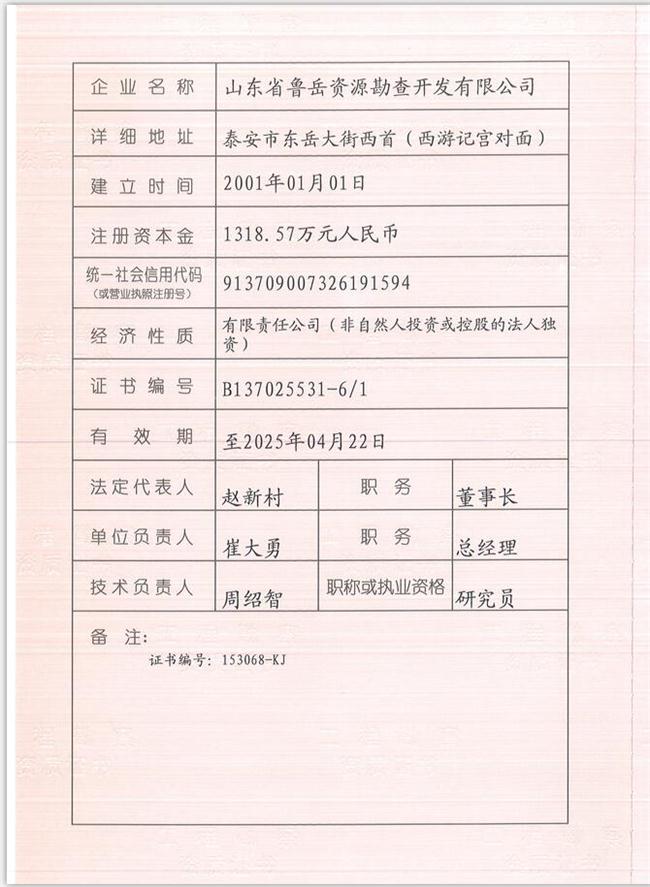 企业名称 山东省鲁岳资源勘查开发有限公司
详细地址 泰安市东岳大街西首（西游记宫对面）
建立时间 2001年01月01日
注册资本金 1318.57万元人民币
统一社会信用代码
（或营业执照注册号） 913709007326191594
经济性质 有限责任公司（非自然人投资或控股的法人独
资）
证书编号 B137025531-6/1
有效期 至2025年04月22日
法定代表人 赵新村 职务 董事长
单位负责人 崔大勇 职务 总经理
技术负责人 周绍智 职称或执业资格 研究员
备注：
证书编号：153068-KJ